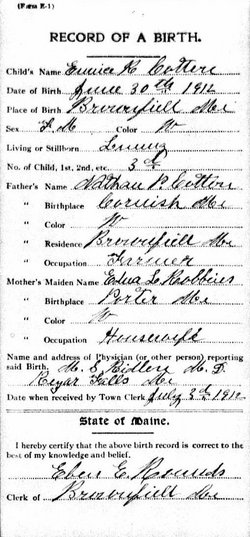 (Form E-1)
RECORD OF A BIRTH.
Child's Name Eunice R Cotton
Date of Birth June 30th 191
Place of Birth Brownfield Me
Sex F. M Color W
Living or Stillborn Living
No. of Child, 1st, 2nd, etc. 3d
Father's Name Nathan P. Cotton
" Birthplace Cornish Me
" Color W
" Residence Brownfield Me
" Occupation Farmer
Mother's Maiden Name Edna L Robbins
" Birthplace Porter Me
" Color W
" Occupation Housewife
Name and address of Physician (or other person) reporting
said Birth. M. D
Kezar Falls Me
Date when received by Town Clerk July 3d 191
State of Maine.
I hereby certify that the above birth record is correct to the
best of my knowledge and belief.
Eben E Rounds
Clerk of Brownfield Me